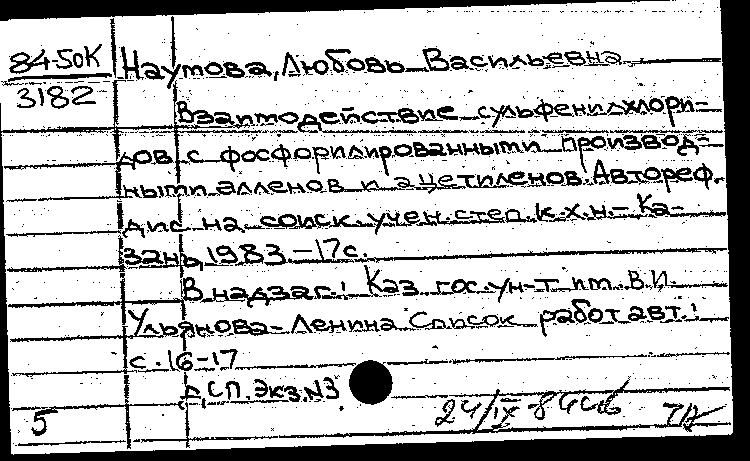 84-50К
3182
Наумова, Любовь Васильевна
Взаимодействие сульфенилхлори-
дов с фосфорилированными производ-
ными алленов и ацетиленов. Автореф.
дис. на соиск. учен. степ. к.х.н. - Ка-
зань, 1983. - 17с.
В надзаг.: Каз. гос. ун-т им. В.И.
Ульянова-Ленина. Список работ авт.:
с. 16-17
ДСП. Экз. N3
5
24/IX-84